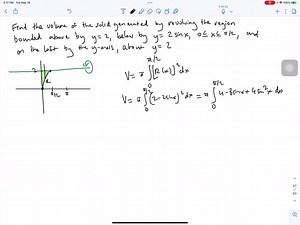 Find the volume of the solid generated by revolving the region
bounded above by y=2, below by y=2 sinx, 0≤x≤π/2, and
on the left by the y-axis, about y=2
V= π∫₀^(π/2) [R(x)]² dx
V= π∫₀^(π/2) (2-2sinx)² dx = π∫₀^(π/2) 4-8sinx+4sin²x dx
2
R
π/2 π